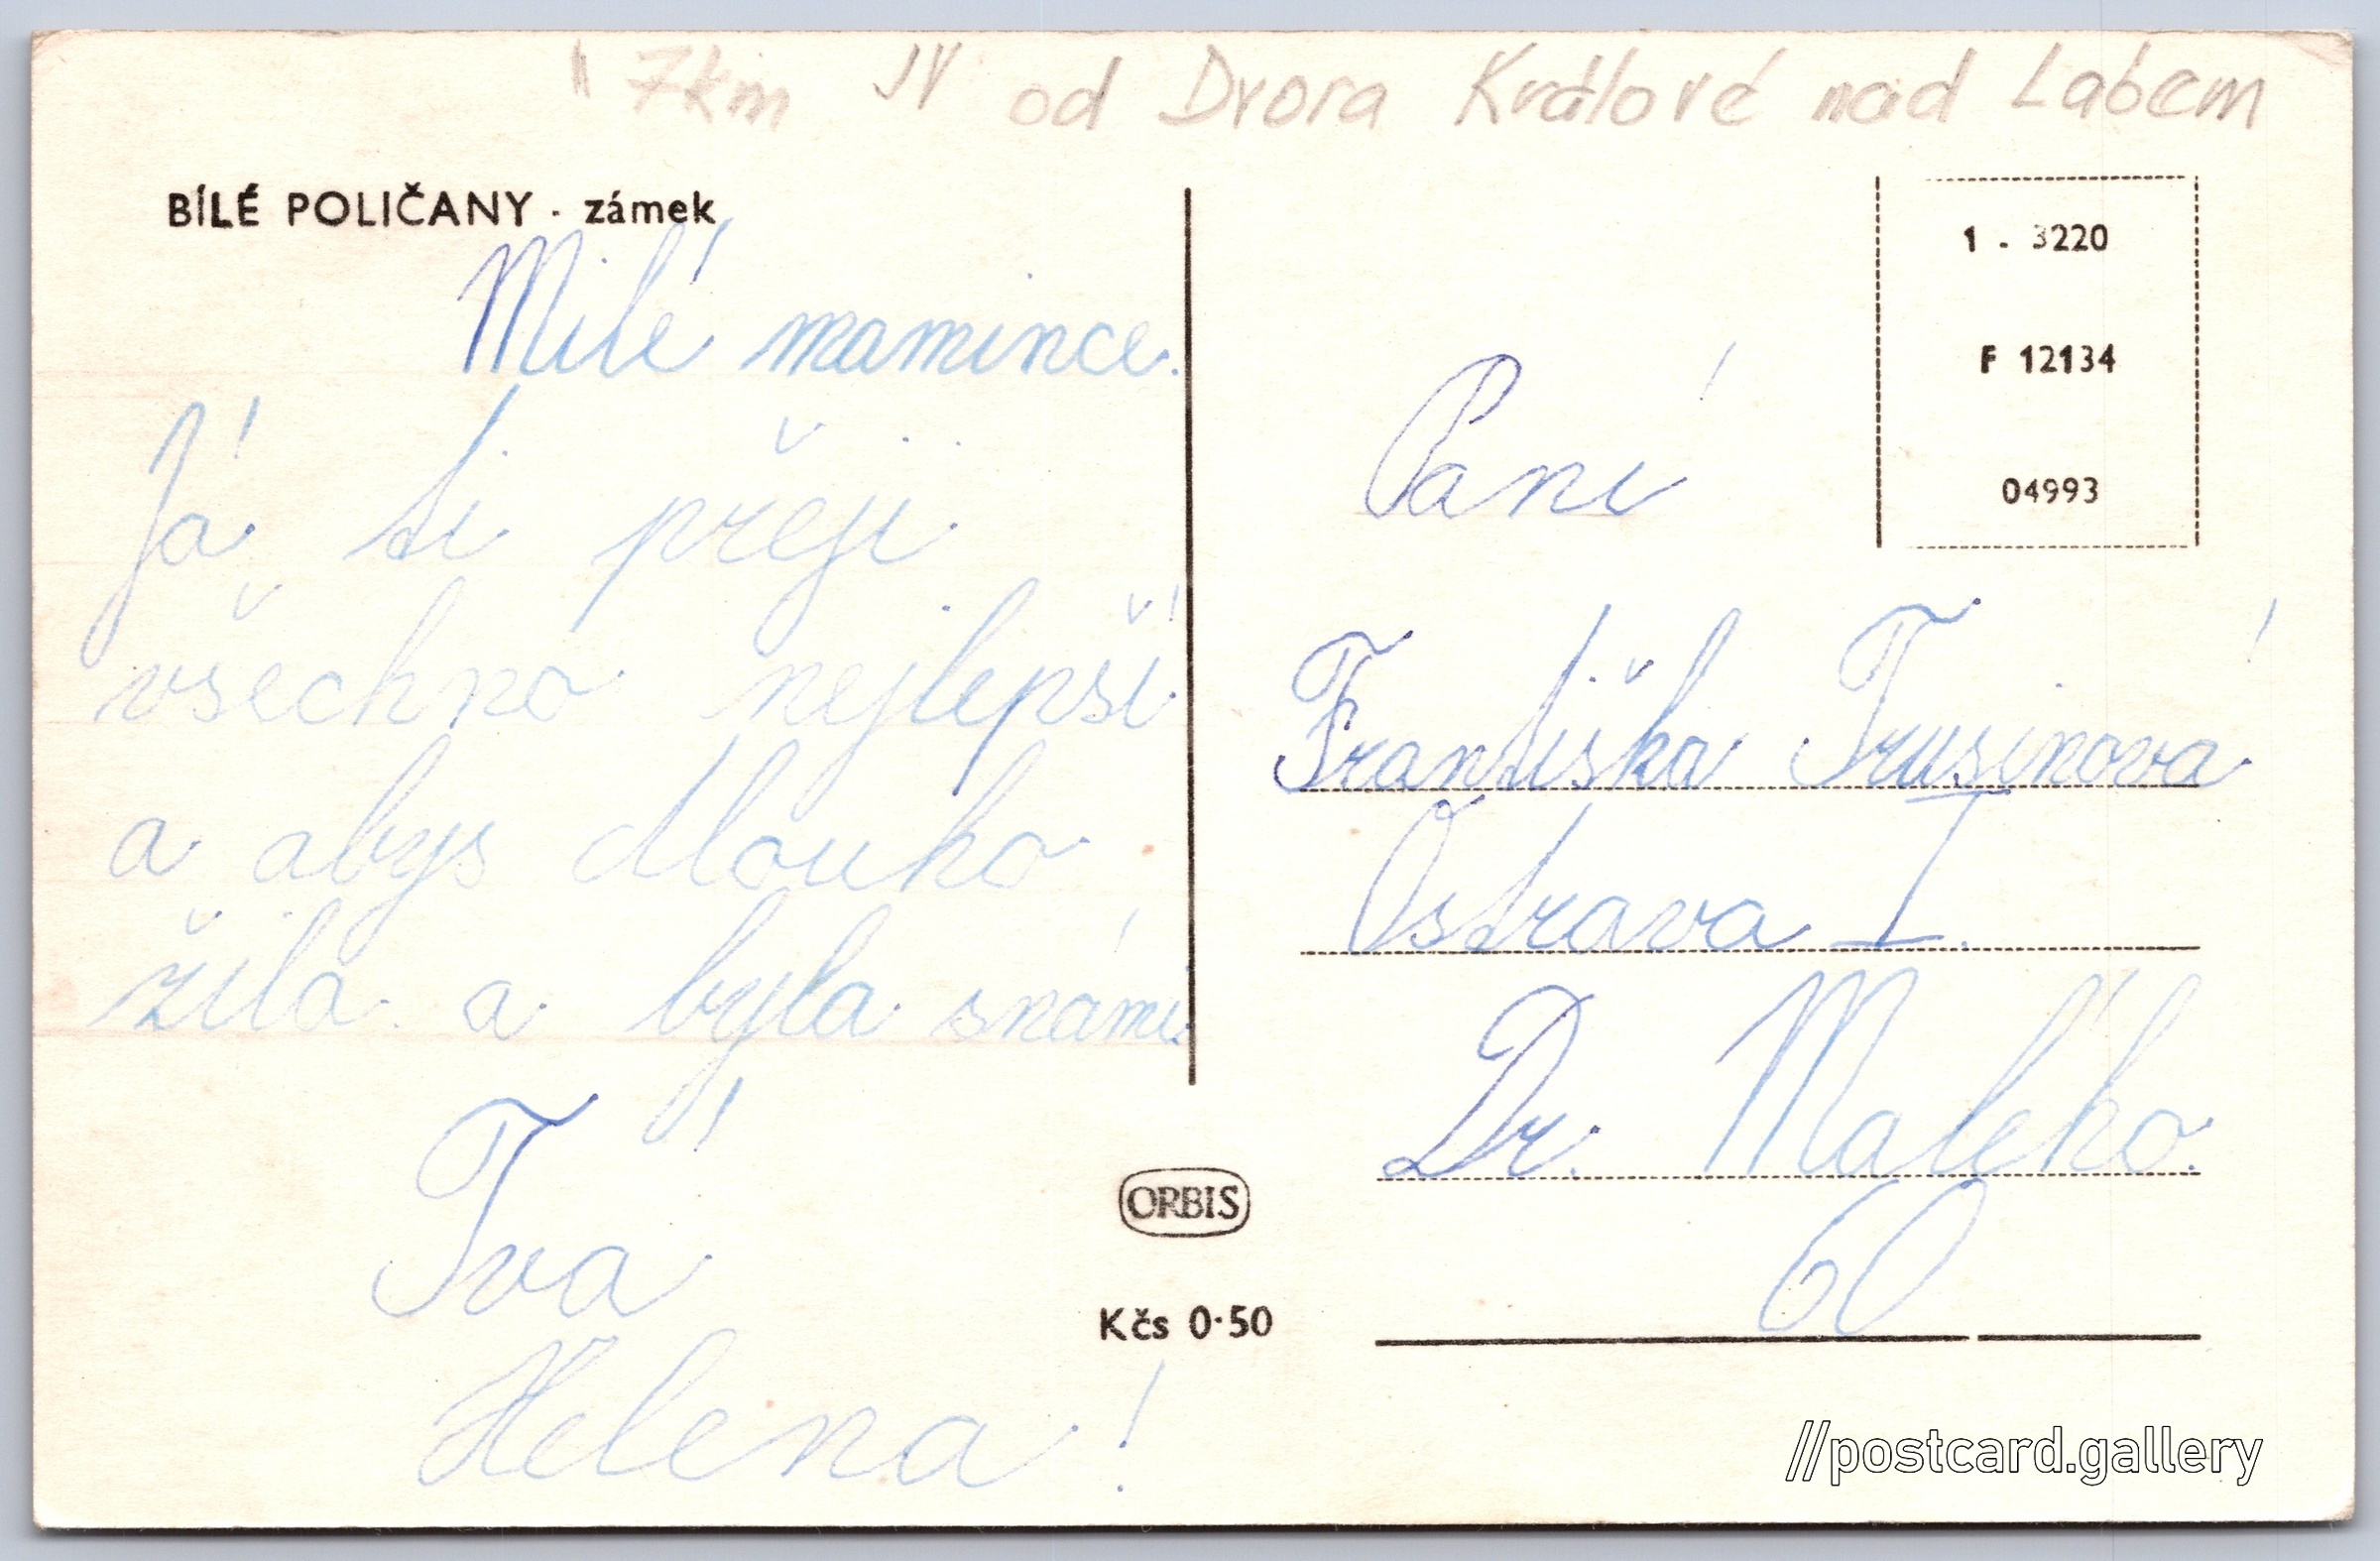 " 7km JV od Dvora Králové nad Labem
BÍLÉ POLIČANY - zámek
Milé mamince.
Já ti přeji
všechno nejlepší
a abys dlouho
žila a byla snámi
Tvá
Helena!
ORBIS
Kčs 0·50
1 - 3220
F 12134
04993
Paní
Františka Trusinová
Ostrava I.
Dr. Malého
60
//postcard.gallery